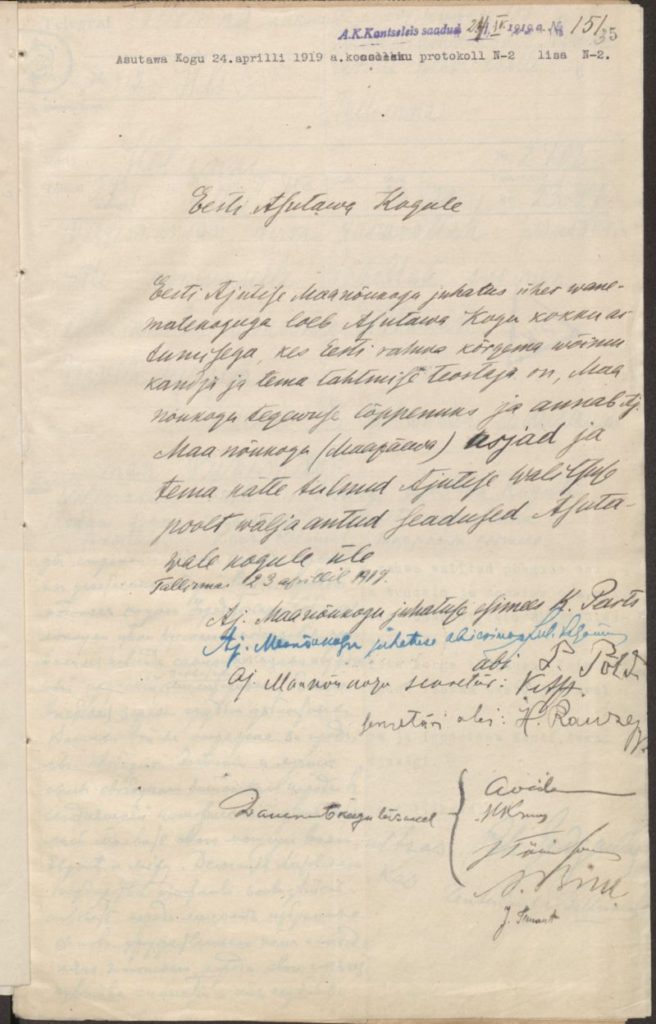 A.K.Kantseleis saadud 24/IV 1919 a. № 151
35
Asutawa Kogu 24.aprilli 1919 a.koosoleku protokoll N-2 lisa N-2.
Eesti Asutawa Kogule
Eesti Ajutise Maanõukogu juhatus ühes wane-
matekoguga loeb Asutawa Kogu kokku as-
tumisega, kes Eesti rahwa kõrgema wõimu
kandja ja tema tahtmise teostaja on, Maa
nõukogu tegewuse lõppenuks ja annab Aj.
Maanõukogu (Maapäewa) asjad ja
tema kätte tulnud Ajutise Walitsuse
poolt wälja antud seadused Asuta-
wale kogule üle
Tallinnas 23 aprillil 1919.
Aj. Maanõukogu juhatuse esimees K. Parts
Aj. Maanõukogu juhatuse abiesimees
abi P. Põld
Aj. Maanõukogu secretär:
secretäri abi:
Wanematekogu liikmed